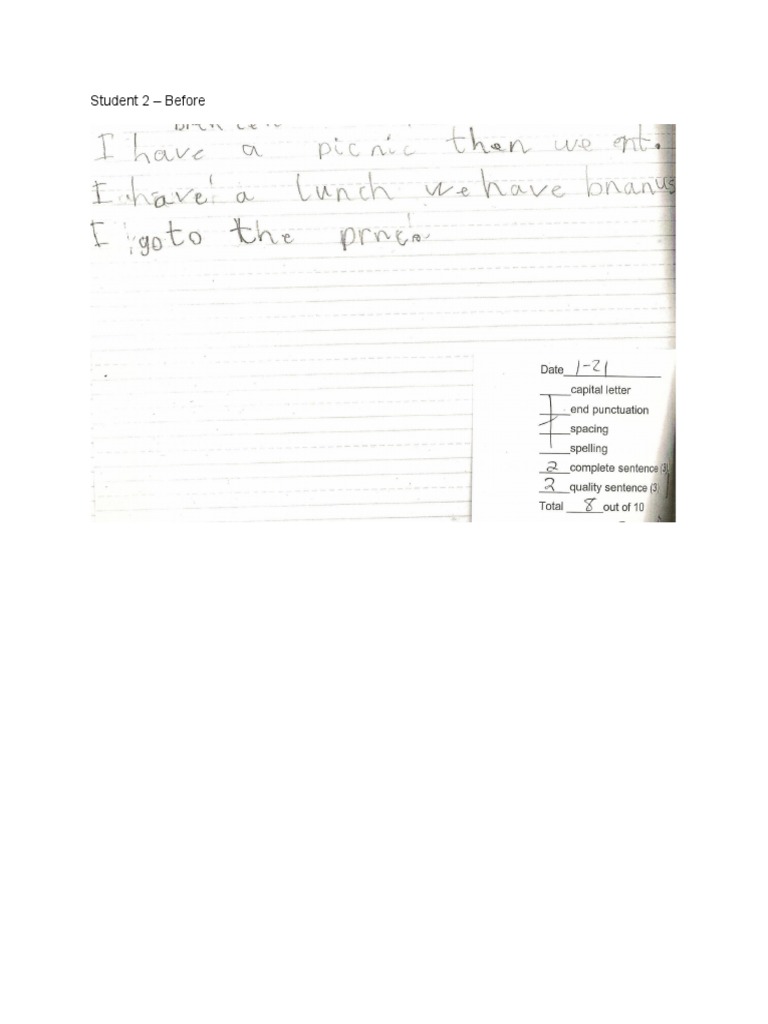 Student 2 – Before
I have a picnic then we ent.
I have a lunch we have bnanus
I go to the prnc.
Date 1-21
capital letter
end punctuation
spacing
spelling
2 complete sentence (3)
2 quality sentence (3)
Total 8 out of 10